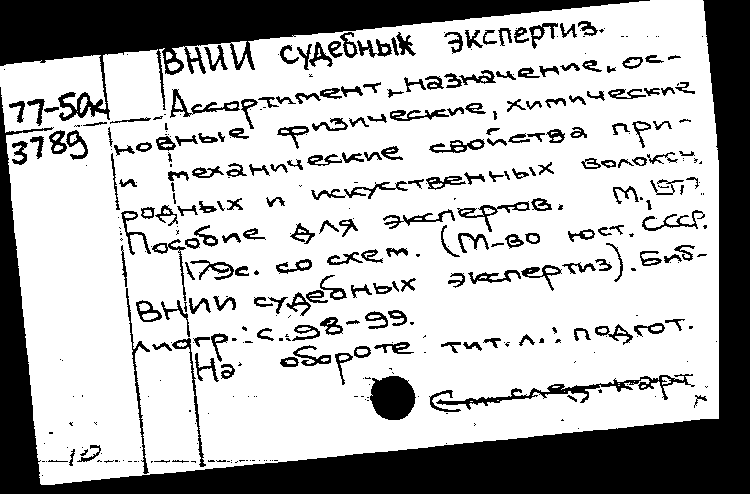 ВНИИ судебных экспертиз.
77-50к
3789
Ассортимент, назначение, ос-
новные физические, химические
и механические свойства при-
родных и искусственных волокон.
Пособие для экспертов. М., 1977
179с. со схем. (М-во юст. СССР.
ВНИИ судебных экспертиз). Биб-
лиогр.: с. 98-99.
На обороте тит. л.: подгот.
См. след. карт
10